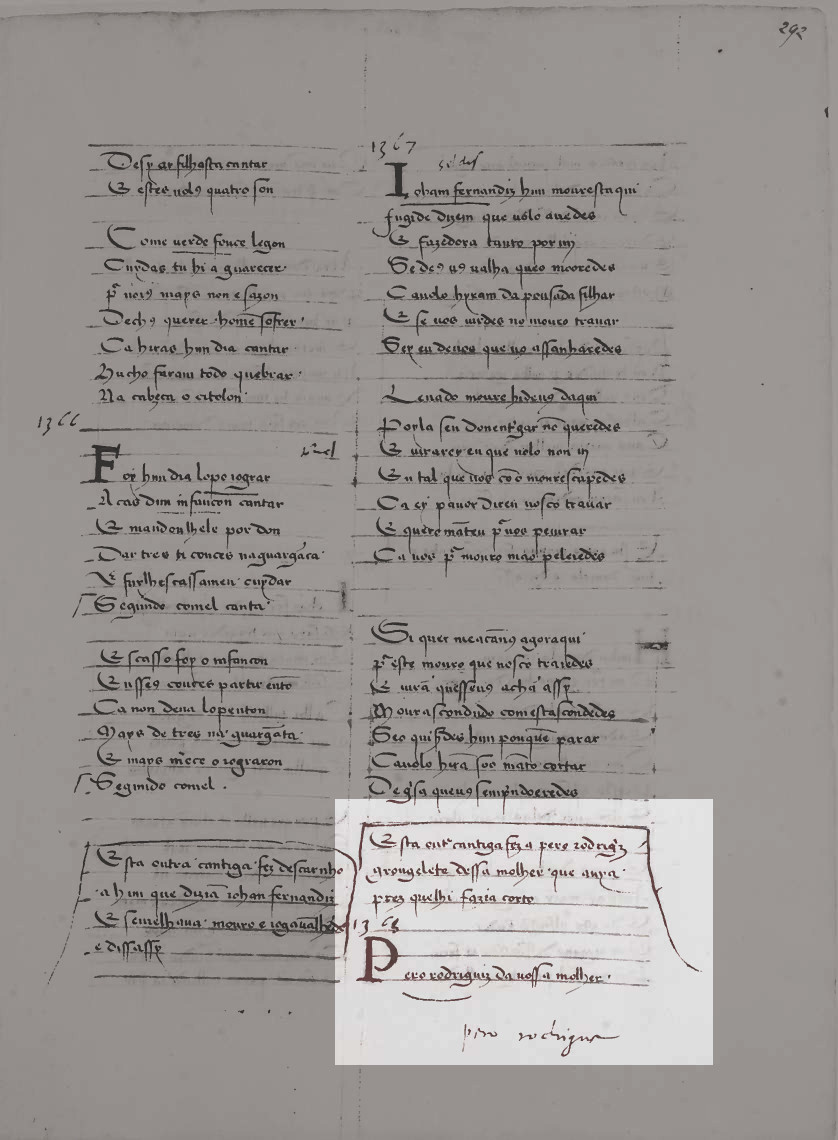 292
Desp ar filhasta cantar
E estes uolꝯ quatro son
Come uerde fouce legon
Cuydas tu hi a guarecer
mays non e sazon
querer home sofrer
Ca hiras hun dia cantar
Hu cho faram todo quebrar
Na cabeça o citolon
1366
Foy hun dia lopo iograr
A cas dun infançon cantar
E mandoulhele por don
Dar tres couces na garganta
E fuylhescassameu cuydar
Segundo comel canta
Escasso foy o infançon
En sseꝯ couces partir
Ca non deu a lopenton
Mays de tres na garganta
E mays o iograron
Segundo comel.
Esta outra cantiga fez descarnho
a hun que dizia iohan fernandiz
E semelhaua mouro e iogaualhe
e diss assy
1367
Ioham fernandiz hun mouresta qui
fugido dizem que uolo auedes
E fazedora tanto por mj
Se deꝯ uꝯ ualha que o mooredes
Ca uolo hyram da pousada filhar
E se uos uirdes no mouro trauar
Sey eu de uos que uo assanharedes
Leuado mouro hideuꝯ daqui
Poyla sen don entgar nō queredes
E uirarey eu que uolo non uj
En tal que uos cō o mourescapedes
Ca ey pauor diren uosco trauar
E quero
Ca uos mouro mao pelejedes
Si quer meacanꝯ agora qui
este mouro que uosco traiedes
E uirā quesseuꝯ acha assy
Mourascondudo com estascondedes
Seo quisdes hun pouque parar
Ca uolo hirā soo māto cortar
Esta outa cantiga fez a pero rodrigz
grongelete dessa molher que auya
prez quelhi fazia torto
1368
Pero rodriguiz da uossa molher
pero rodrigue